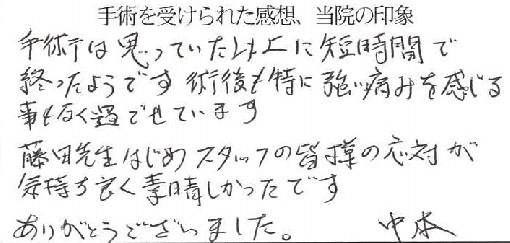 手術を受けられた感想、当院の印象
手術は思っていた以上に短時間で
終ったようです 術後も特に強い痛みを感じる
事もなく過ごせています
藤田先生はじめスタッフの皆様の応対が
気持ち良く素晴しかったです
ありがとうございました。 中本